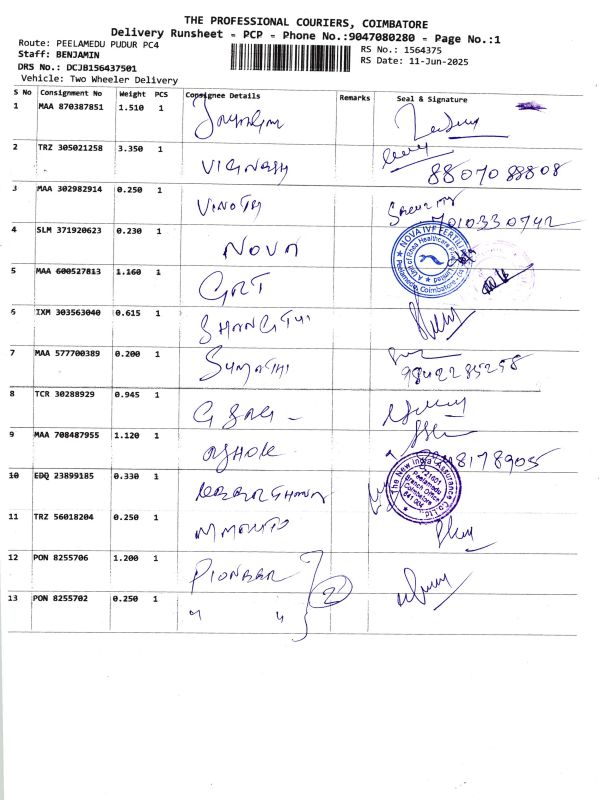 THE PROFESSIONAL COURIERS, COIMBATORE
Delivery Runsheet - PCP - Phone No.:9047080280 - Page No.:1
Route: PEELAMEDU PUDUR PC4
Staff: BENJAMIN
DRS No.: DCJB156437501
Vehicle: Two Wheeler Delivery
RS No.: 1564375
RS Date: 11-Jun-2025
S No Consignment No Weight PCS Consignee Details Remarks Seal & Signature
1 MAA 870387851 1.510 1
2 TRZ 305021258 3.350 1 VIGNESH 8807088808
3 MAA 302982914 0.250 1 VINOTH 7010330742
4 SLM 371920623 0.230 1 NOVA
NOVA IVF FERTILI
A Unit of Rhea Healthcare
Peelamedu, Coimbatore
5 MAA 600527813 1.160 1 GRT
6 IXM 303563040 0.615 1
7 MAA 577700389 0.200 1 SUMATHI 9842285258
8 TCR 30288929 0.945 1
9 MAA 708487955 1.120 1 ASHOK
10 EDQ 23899185 0.330 1
The New India Assurance Co. Ltd.
721601
Peelamedu
Branch Office
Coimbatore
641 004
11 TRZ 56018204 0.250 1
12 PON 8255706 1.200 1 PIONEER
2
13 PON 8255702 0.250 1 " "